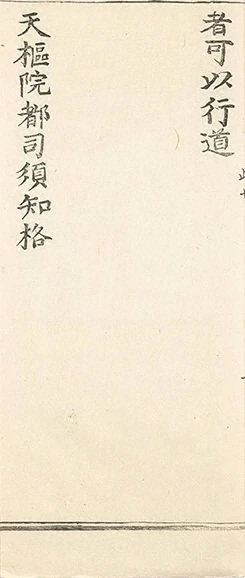 者可以行道
天樞院都司須知格